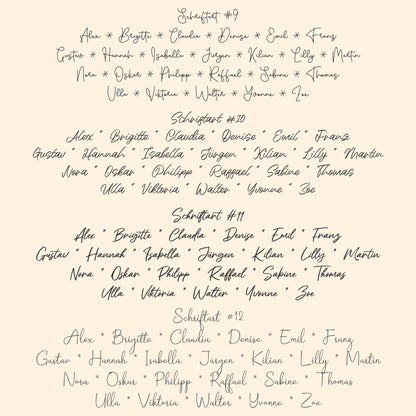 Schriftart #9
Alex * Brigitte * Claudia * Denise * Emil * Franz
Gustav * Hannah * Isabella * Jürgen * Kilian * Lilly * Martin
Nora * Oskar * Philipp * Raffael * Sabine * Thomas
Ulla * Viktoria * Walter * Yvonne * Zoe
Schriftart #10
Alex * Brigitte * Claudia * Denise * Emil * Franz
Gustav * Hannah * Isabella * Jürgen * Kilian * Lilly * Martin
Nora * Oskar * Philipp * Raffael * Sabine * Thomas
Ulla * Viktoria * Walter * Yvonne * Zoe
Schriftart #11
Alex * Brigitte * Claudia * Denise * Emil * Franz
Gustav * Hannah * Isabella * Jürgen * Kilian * Lilly * Martin
Nora * Oskar * Philipp * Raffael * Sabine * Thomas
Ulla * Viktoria * Walter * Yvonne * Zoe
Schriftart #12
Alex * Brigitte * Claudia * Denise * Emil * Franz
Gustav * Hannah * Isabella * Jürgen * Kilian * Lilly * Martin
Nora * Oskar * Philipp * Raffael * Sabine * Thomas
Ulla * Viktoria * Walter * Yvonne * Zoe